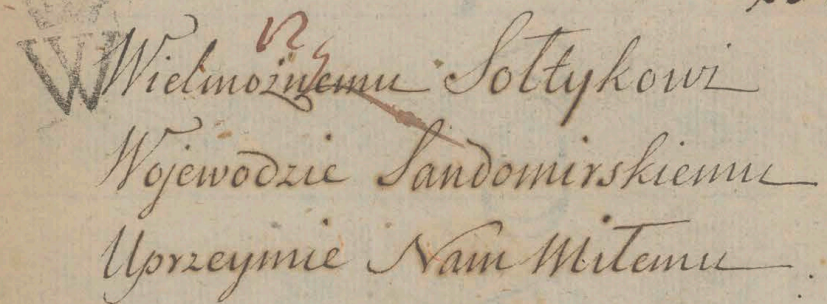 Wielmożnemu Sołtykowi
Wojewodzie Sandomirskiemu
Uprzeymie Nam Miłemu